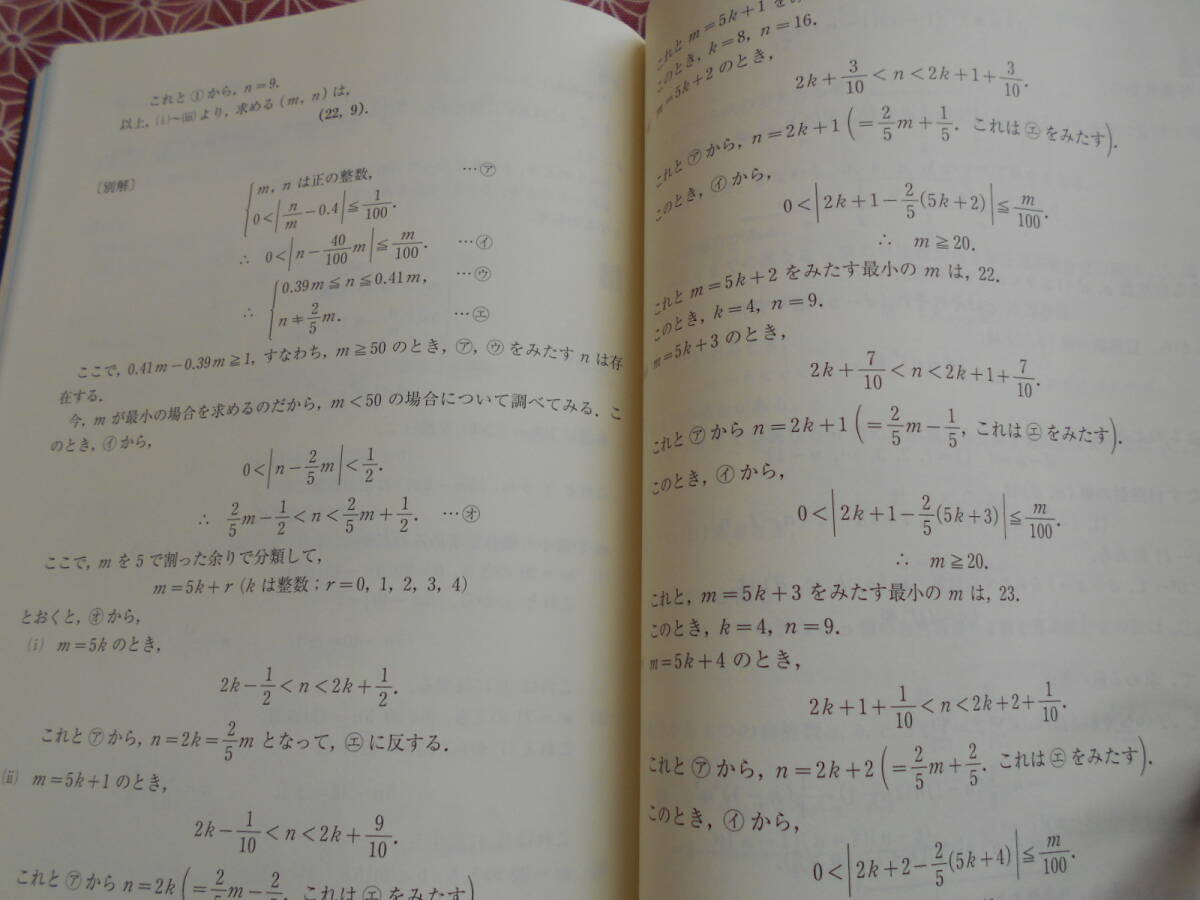 これと①から, n=9.
以上, (i)~(iii)より, 求める (m, n) は,
(22, 9).
〔別解〕
{ m, n は正の整数, …㋐
0<|n/m−0.4|≦1/100.
∴ 0<|n−40/100 m|≦m/100. …㋑
∴ { 0.39m≦n≦0.41m, …㋒
n≠2/5 m. …㋓
ここで, 0.41m−0.39m≧1, すなわち, m≧50 のとき, ㋐, ㋒をみたす n は存
在する.
今, m が最小の場合を求めるのだから, m<50 の場合について調べてみる. こ
のとき, ㋑から,
0<|n−2/5 m|<1/2.
∴ 2/5 m−1/2<n<2/5 m+1/2. …㋔
ここで, m を 5 で割った余りで分類して,
m=5k+r (k は整数; r=0, 1, 2, 3, 4)
とおくと, ㋔から,
(i) m=5k のとき,
2k−1/2<n<2k+1/2.
これと㋐から, n=2k=2/5 m となって, ㋓に反する.
(ii) m=5k+1 のとき,
2k−1/10<n<2k+9/10.
これと㋐から n=2k (=2/5 m−2/5. これは㋓をみたす)
これと m=5k+1 をみ
このとき, k=8, n=16.
m=5k+2 のとき,
2k+3/10<n<2k+1+3/10.
これと㋐から, n=2k+1 (=2/5 m+1/5. これは㋓をみたす).
このとき, ㋑から,
0<|2k+1−2/5(5k+2)|≦m/100.
∴ m≧20.
これと m=5k+2 をみたす最小の m は, 22.
このとき, k=4, n=9.
m=5k+3 のとき,
2k+7/10<n<2k+1+7/10.
これと㋐から n=2k+1 (=2/5 m−1/5, これは㋓をみたす).
このとき, ㋑から,
0<|2k+1−2/5(5k+3)|≦m/100.
∴ m≧20.
これと, m=5k+3 をみたす最小の m は, 23.
このとき, k=4, n=9.
m=5k+4 のとき,
2k+1+1/10<n<2k+2+1/10.
これと㋐から, n=2k+2 (=2/5 m+2/5. これは㋓をみたす).
このとき, ㋑から,
0<|2k+2−2/5(5k+4)|≦m/100.